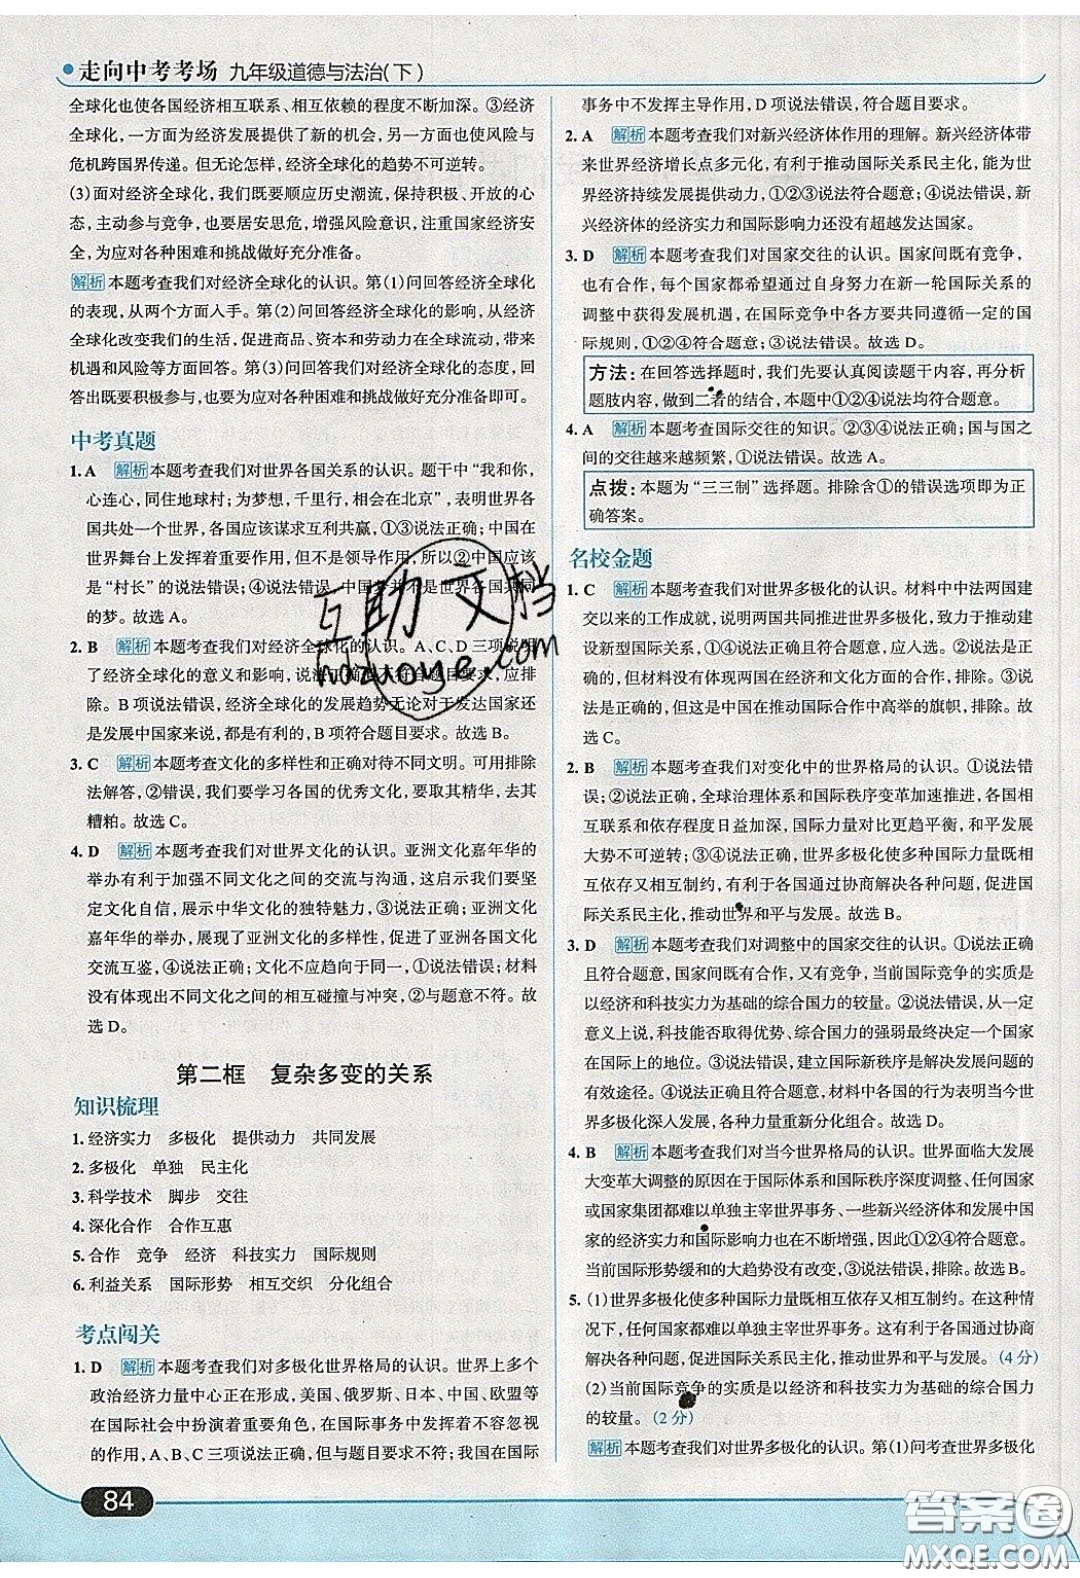 走向中考考场 九年级道德与法治(下)
全球化也使各国经济相互联系、相互依赖的程度不断加深。③经济
全球化,一方面为经济发展提供了新的机会,另一方面也使风险与
危机跨国界传递。但无论怎样,经济全球化的趋势不可逆转。
(3)面对经济全球化,我们要顺应历史潮流,保持积极、开放的心
态,主动参与竞争,也要居安思危,增强风险意识,注重国家经济安
全,为应对各种困难和挑战做好充分准备。
解析 本题考查我们对经济全球化的认识。第(1)问回答经济全球化
的表现,从两个方面入手。第(2)问回答经济全球化的影响,从经济
全球化改变我们的生活,促进商品、资本和劳动力在全球流动,带来
机遇和风险等方面回答。第(3)问回答我们对经济全球化的态度,回
答出既要积极参与,也要为应对各种困难和挑战做好充分准备即可。
中考真题
1. A 解析 本题考查我们对世界各国关系的认识。题干中“我和你,
心连心,同住地球村;为梦想,千里行,相会在北京”,表明世界各
国共处一个世界,各国应该谋求互利共赢,①③说法正确;中国在
世界舞台上发挥着重要作用,但不是领导作用,所以②中国应该
是“村长”的说法错误;④说法错误,中国梦并不是世界各国共同
的梦。故选 A。
2. B 解析 本题考查我们对经济全球化的认识。A、C、D 三项说明
了经济全球化的意义和影响,说法正确但不符合题目要求,应排
除。B 项说法错误,经济全球化的发展趋势无论对于发达国家还
是发展中国家来说,都是有利的,B 项符合题目要求。故选 B。
3. C 解析 本题考查文化的多样性和正确对待不同文明。可用排除
法解答,②错误,我们要学习各国的优秀文化,要取其精华,去其
糟粕。故选 C。
4. D 解析 本题考查我们对世界文化的认识。亚洲文化嘉年华的
举办有利于加强不同文化之间的交流与沟通,这启示我们要坚
定文化自信,展示中华文化的独特魅力,③说法正确;亚洲文化
嘉年华的举办,展现了亚洲文化的多样性,促进了亚洲各国文化
交流互鉴,④说法正确;文化不应趋向于同一,①说法错误;材料
没有体现出不同文化之间的相互碰撞与冲突,②与题意不符。故
选 D。
第二框 复杂多变的关系
知识梳理
1. 经济实力 多极化 提供动力 共同发展
2. 多极化 单独 民主化
3. 科学技术 脚步 交往
4. 深化合作 合作互惠
5. 合作 竞争 经济 科技实力 国际规则
6. 利益关系 国际形势 相互交织 分化组合
考点闯关
1. D 解析 本题考查我们对多极化世界格局的认识。世界上多个
政治经济力量中心正在形成,美国、俄罗斯、日本、中国、欧盟等
在国际社会中扮演着重要角色,在国际事务中发挥着不容忽视
的作用,A、B、C 三项说法正确,但与题目要求不符;我国在国际
事务中不发挥主导作用,D 项说法错误,符合题目要求。
2. A 解析 本题考查我们对新兴经济体作用的理解。新兴经济体带
来世界经济增长点多元化,有利于推动国际关系民主化,能为世
界经济持续发展提供动力,①②③说法符合题意;④说法错误,新
兴经济体的经济实力和国际影响力还没有超越发达国家。
3. D 解析 本题考查我们对国家交往的认识。国家间既有竞争,
也有合作,每个国家都希望通过自身努力在新一轮国际关系的
调整中获得发展机遇,在国际竞争中各方要共同遵循一定的国
际规则,①②④符合题意;③说法错误。故选 D。
方法:在回答选择题时,我们先要认真阅读题干内容,再分析
题肢内容,做到二者的结合,本题中①②④说法均符合题意。
4. A 解析 本题考查国际交往的知识。②③④说法正确;国与国之
间的交往越来越频繁,①说法错误。故选 A。
点拨:本题为“三三制”选择题。排除含①的错误选项即为正
确答案。
名校金题
1. C 解析 本题考查我们对世界多极化的认识。材料中中法两国建
交以来的工作成就,说明两国共同推进世界多极化,致力于推动建
设新型国际关系,①④说法正确且符合题意,应入选。②说法是正
确的,但材料没有体现两国在经济和文化方面的合作,排除。③说
法是正确的,但这是中国在推动国际合作中高举的旗帜,排除。故
选 C。
2. B 解析 本题考查我们对变化中的世界格局的认识。①说法错
误;②说法正确,全球治理体系和国际秩序变革加速推进,各国相
互联系和依存程度日益加深,国际力量对比更趋平衡,和平发展
大势不可逆转;③④说法正确,世界多极化使多种国际力量既相
互依存又相互制约,有利于各国通过协商解决各种问题,促进国
际关系民主化,推动世界和平与发展。故选 B。
3. D 解析 本题考查我们对调整中的国家交往的认识。①说法正确
且符合题意,国家间既有合作,又有竞争,当前国际竞争的实质是
以经济和科技实力为基础的综合国力的较量。②说法错误,从一定
意义上说,科技能否取得优势、综合国力的强弱最终决定一个国家
在国际上的地位。③说法错误,建立国际新秩序是解决发展问题的
有效途径。④说法正确且符合题意,材料中各国的行为表明当今世
界多极化深入发展,各种力量重新分化组合。故选 D。
4. B 解析 本题考查我们对当今世界格局的认识。世界面临大发展
大变革大调整的原因在于国际体系和国际秩序深度调整、任何国家
或国家集团都难以单独主宰世界事务、一些新兴经济体和发展中国
家的经济实力和国际影响力也在不断增强,因此①②④符合题意。
当前国际形势缓和的大趋势没有改变,③说法错误,排除。故选 B。
5. (1)世界多极化使多种国际力量既相互依存又相互制约。在这种情
况下,任何国家都难以单独主宰世界事务。这有利于各国通过协商
解决各种问题,促进国际关系民主化,推动世界和平与发展。(4 分)
(2)当前国际竞争的实质是以经济和科技实力为基础的综合国力
的较量。(2 分)
解析 本题考查我们对世界多极化的认识。第(1)问考查世界多极化
84
互助文档
hdzuoye.com
答案圈
MXQE.COM